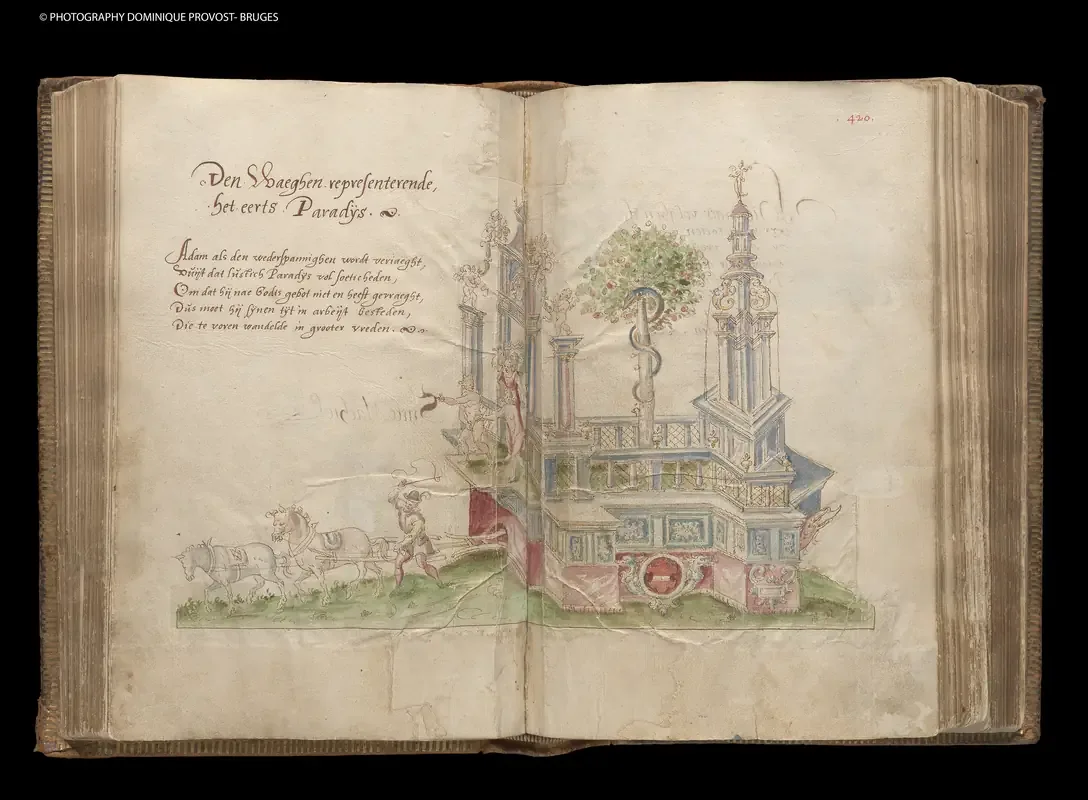 © PHOTOGRAPHY DOMINIQUE PROVOST- BRUGES
420.
Den Waeghen representerende,
het eerts Paradÿs.
Adam als den wederspannighen wordt veriaeght,
Wuÿt dat lustich Paradÿs vol soeticheden,
Om dat hÿ nae Godts gebot niet en heeft gevraeght,
Dus moet hÿ sÿnen tÿt in arbeÿt besteden,
Die te voren wandelde in grooter vreden.